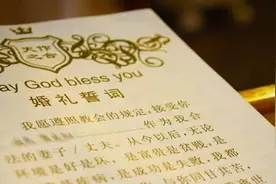 天作之合
ay God bless you
婚礼誓词
我愿遵照教会的规定，接受你
作为我合
法的妻子/丈夫。从今以后，无论
环境是好是坏，是富贵是贫贱，是
是疾病，是成功是失败，我都